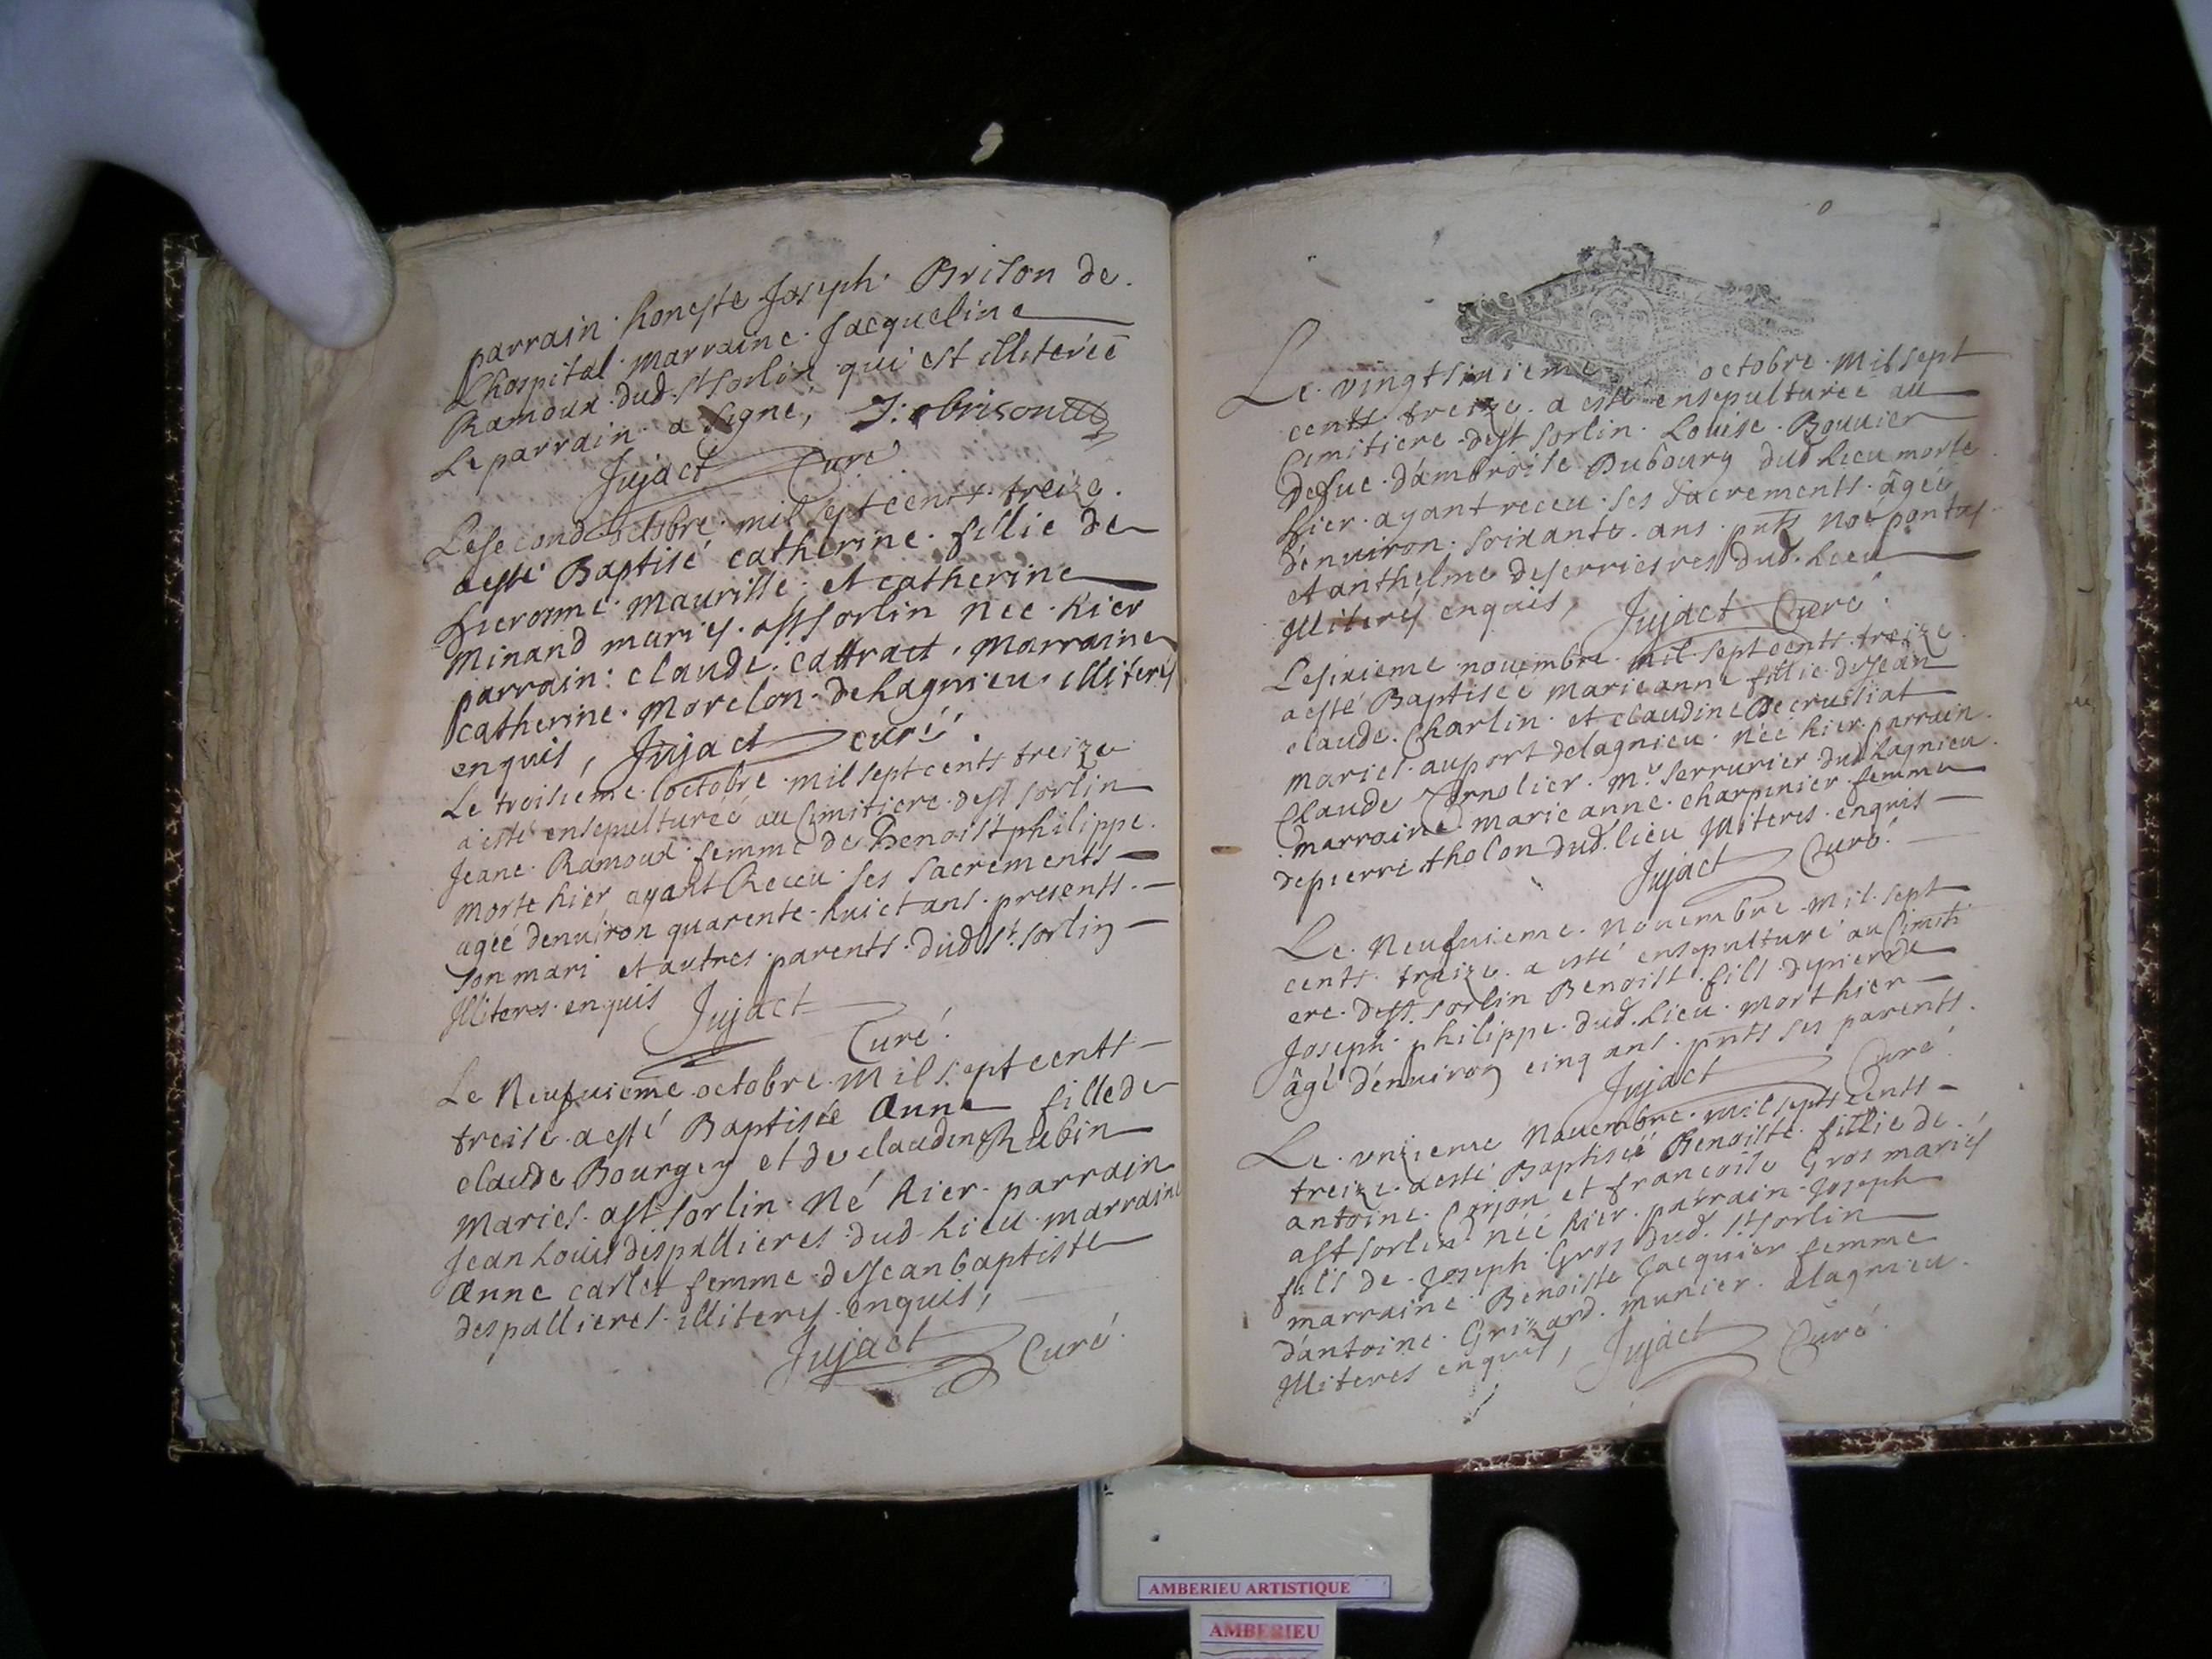 parrain honeste Joseph Brison de
Lhospital marraine Jacqueline
Ramoux dud. St Sorlin qui est illiterée
Le parrain a signé, J: brison
Jujact Curé
Le second octobre mil sept cents treize
a esté Baptisé catherine fillie de
hierosme Maurille et catherine
Minand mariés a St Sorlin née hier
parrain claude cattract, Marraine
catherine Morelon de Lagnieu illiterés
enquis, Jujact curé
Le troisieme octobre mil sept cents treize
a esté ensepulturéé au Cimitiere de St Sorlin
Jeane Ramoux femme de Benoist philippe
morte hier ayant Receu ses sacrements
agéé denuiron quarente huict ans presents
son mari et autres parents dud St. Sorlin
Illiteres enquis Jujact
Curé
Le Neufuieme octobre Mil sept cents
treise a esté Baptisée Anne fille de
claude Bourgey et de claudine Chabin
Maries a St Sorlin Né hier parrain
Jean Louis despallieres dud Lieu marraine
Anne carlet femme de Jean baptiste
despallieres illiterés enquis,
Jujact Curé
Le vingtsixieme octobre Mil sept
cents treize a esté ensepulturée au
Cimitiere de St Sorlin Louise Bouuier
vefue d'ambroise Dubourg dud Lieu morte
hier ayant receu ses sacrements âgéé
d'enuiron soixante ans pnts Noé pontus
et anthelme deserrieres dud. Lieu
Illiterés enquis, Jujact Curé
Le sixieme nouembre mil sept cents treize
a esté Baptisée marie anne fillie de Jean
claude Charlin et claudine Decrusliat
mariés au port de lagnieu néé hier parrain
Claude Tornolier Mr serrurier dud Lagnieu
marraine marie anne charpinier femme
de pierre tholon dud. lieu Illiteres enquis
Jujact Curé
Le Neufuieme Nouembre Mil sept
cents treize a esté ensepulturé au Cimiti
ere de St. Sorlin Benoist fils de pierre
Joseph philippe dud. Lieu mort hier
âgé d'enuiron cinq ans pnts ses parents
Jujact Curé
Le vnzieme Nouembre mil sept cents
treize a esté Baptiséé Benoiste fillie de
antoine Carjon et francoise Gros mariés
a St Sorlin néé hier parrain Joseph
fils de Joseph Gros dud. St Sorlin
marraine Benoiste Jacquier femme
d'antoine Grizard munier a lagnieu
Illiteres enquis, Jujact Curé
AMBERIEU ARTISTIQUE
AMBERIEU